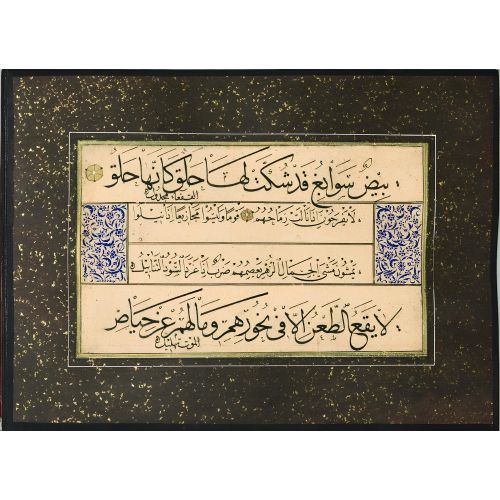 بيض سوابغ قد شكت لها حلق كأنها حلق
القفعاء مجدول
لا يفرحون اذا نالت رماحهم قوما وليسوا مجازيعا اذا نيلوا
يمشون مشي الجمال الزهر يعصمهم ضرب اذا عرد السود التنابيل
لا يقع الطعن الا في نحورهم وما لهم عن حياض
الموت تهليل